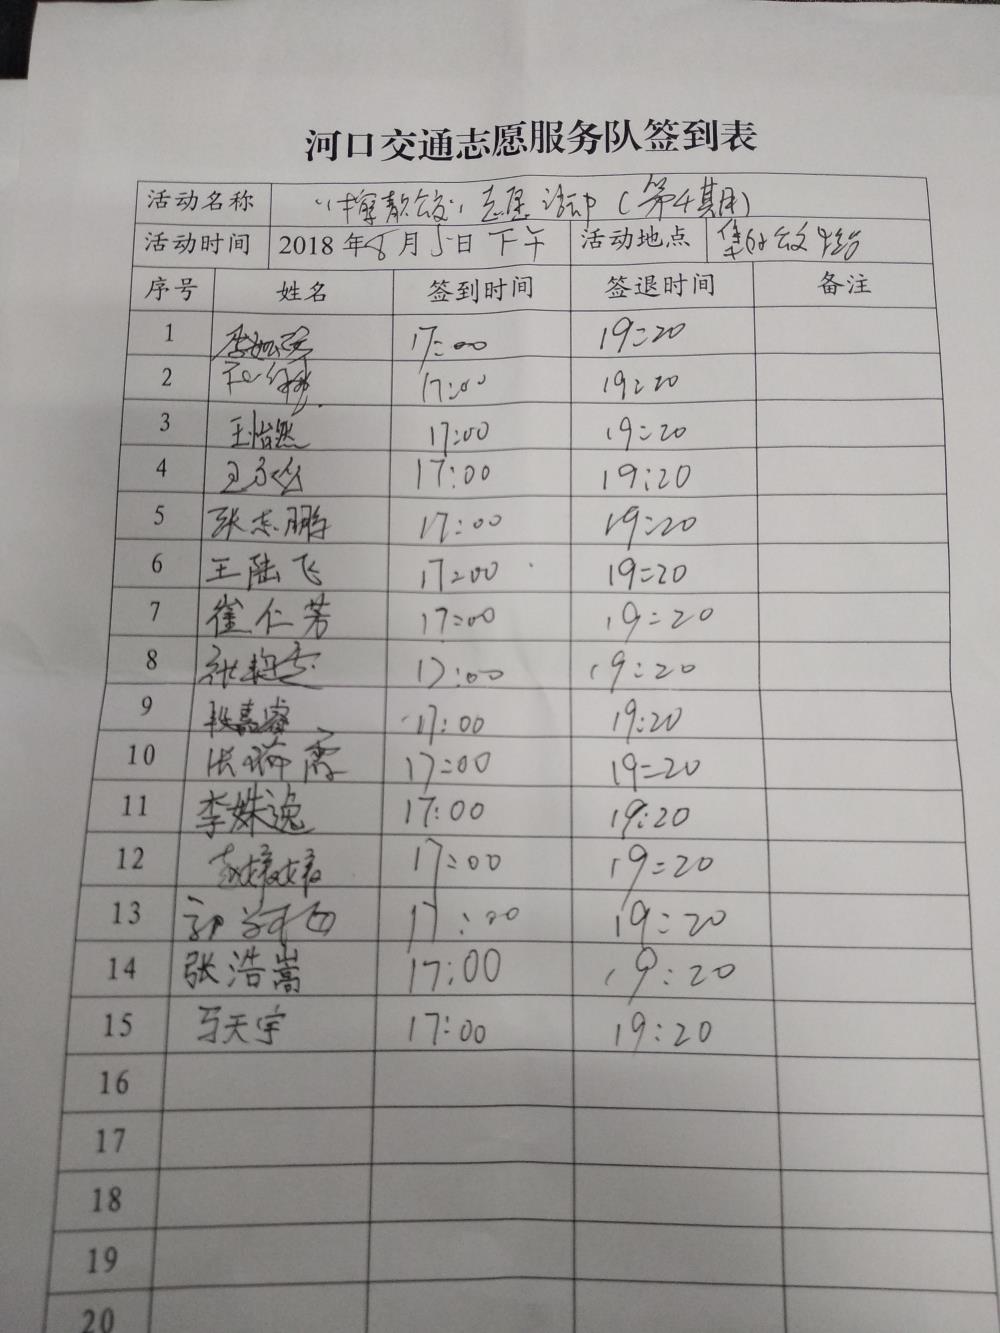 河口交通志愿服务队签到表
活动名称 志愿活动(第4期)
活动时间 2018年8月5日下午 活动地点
序号 姓名 签到时间 签退时间 备注
1 17:00 19:20
2 17:00 19:20
3 王怡然 17:00 19:20
4 17:00 19:20
5 张志鹏 17:00 19:20
6 王陆飞 17:00 19:20
7 崔仁芳 17:00 19:20
8 张 17:00 19:20
9 段嘉睿 17:00 19:20
10 张瑞霞 17:00 19:20
11 李姝逸 17:00 19:20
12 17:00 19:20
13 郭 17:00 19:20
14 张浩嵩 17:00 19:20
15 马天宇 17:00 19:20
16
17
18
19
20